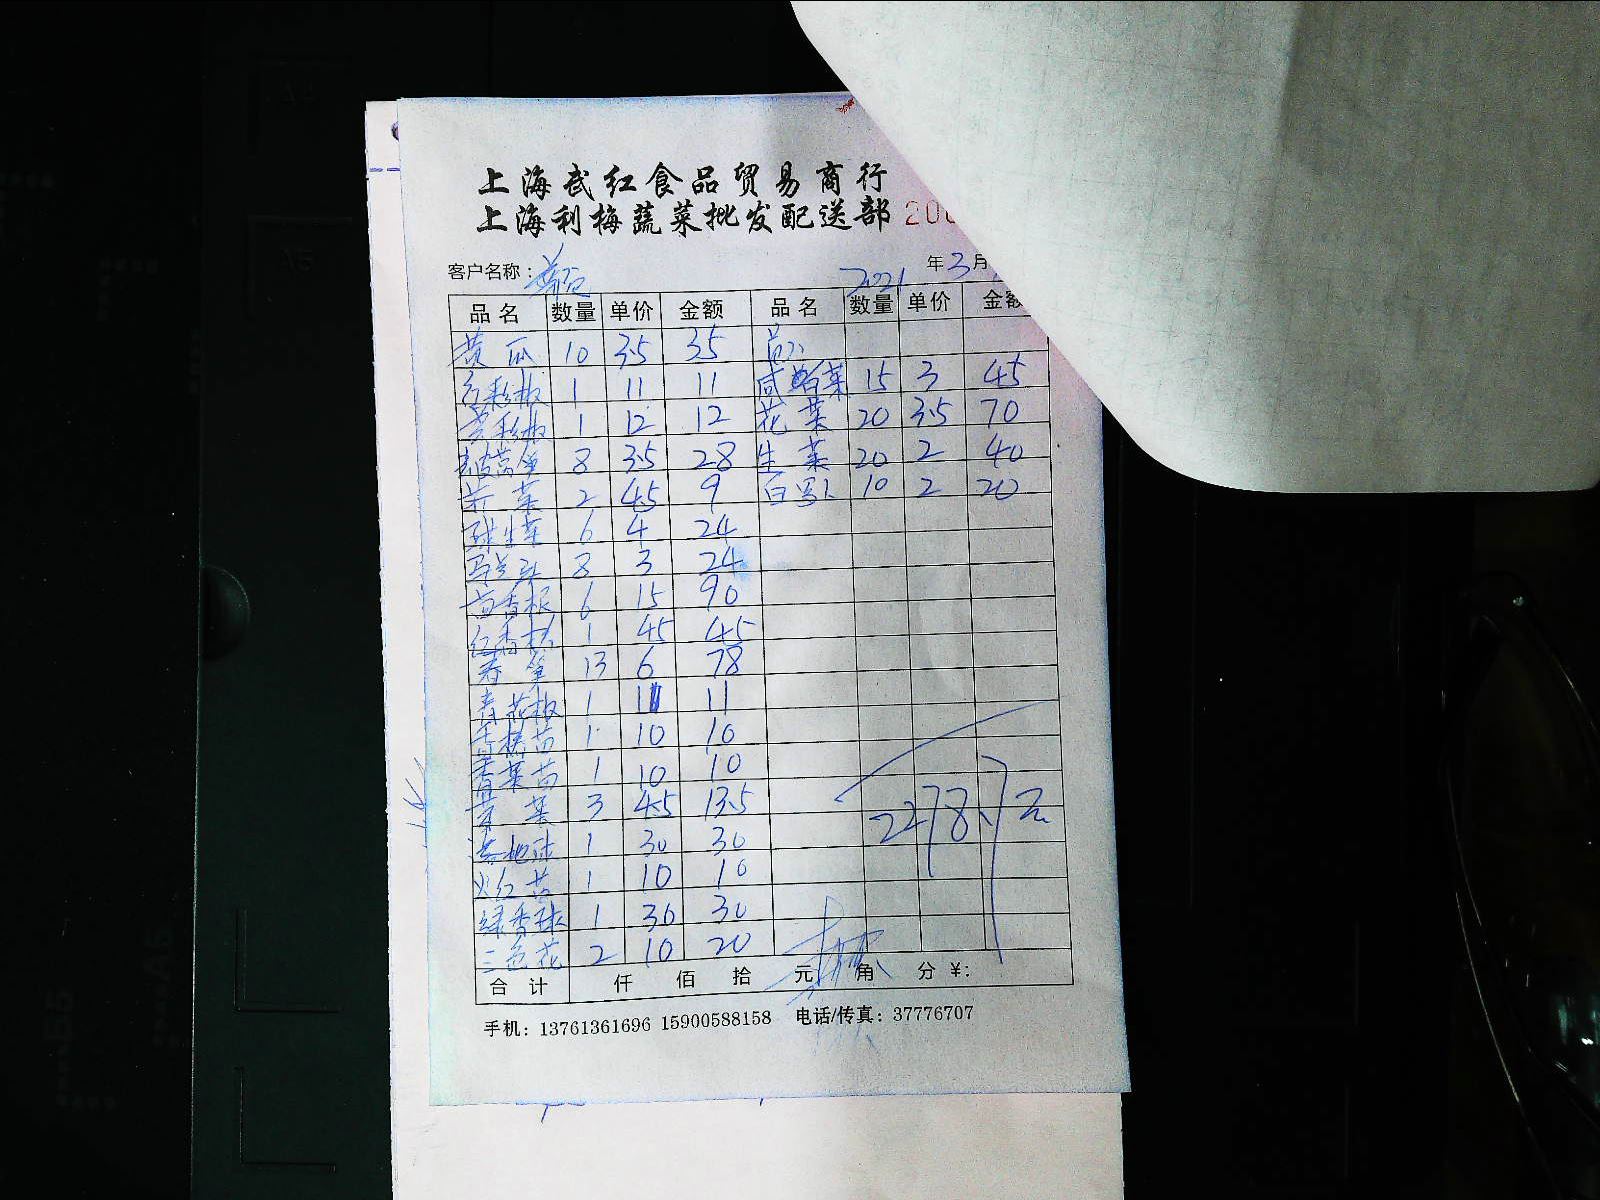 上海武红食品贸易商行
上海利梅蔬菜批发配送部 200
客户名称： 2021 年 3 月
品名 数量 单价 金额 品名 数量 单价 金额
黄瓜 10 3.5 35
红彩椒 1 11 11 15 3 45
黄彩椒 1 12 12 花菜 20 3.5 70
8 3.5 28 生菜 20 2 40
2 4.5 9 白罗卜 10 2 20
球生菜 6 4 24
马兰头 8 3 24
茴香根 6 15 90
1 45 45
春笋 13 6 78
青花椒 1 11 11
1 10 10
香菜苗 1 10 10
3 4.5 13.5
1 30 30
火红苗 1 10 10
1 30 30
三色花 2 10 20
2278 元
合计 仟 佰 拾 元 角 分 ¥:
手机：13761361696 15900588158 电话/传真：37776707